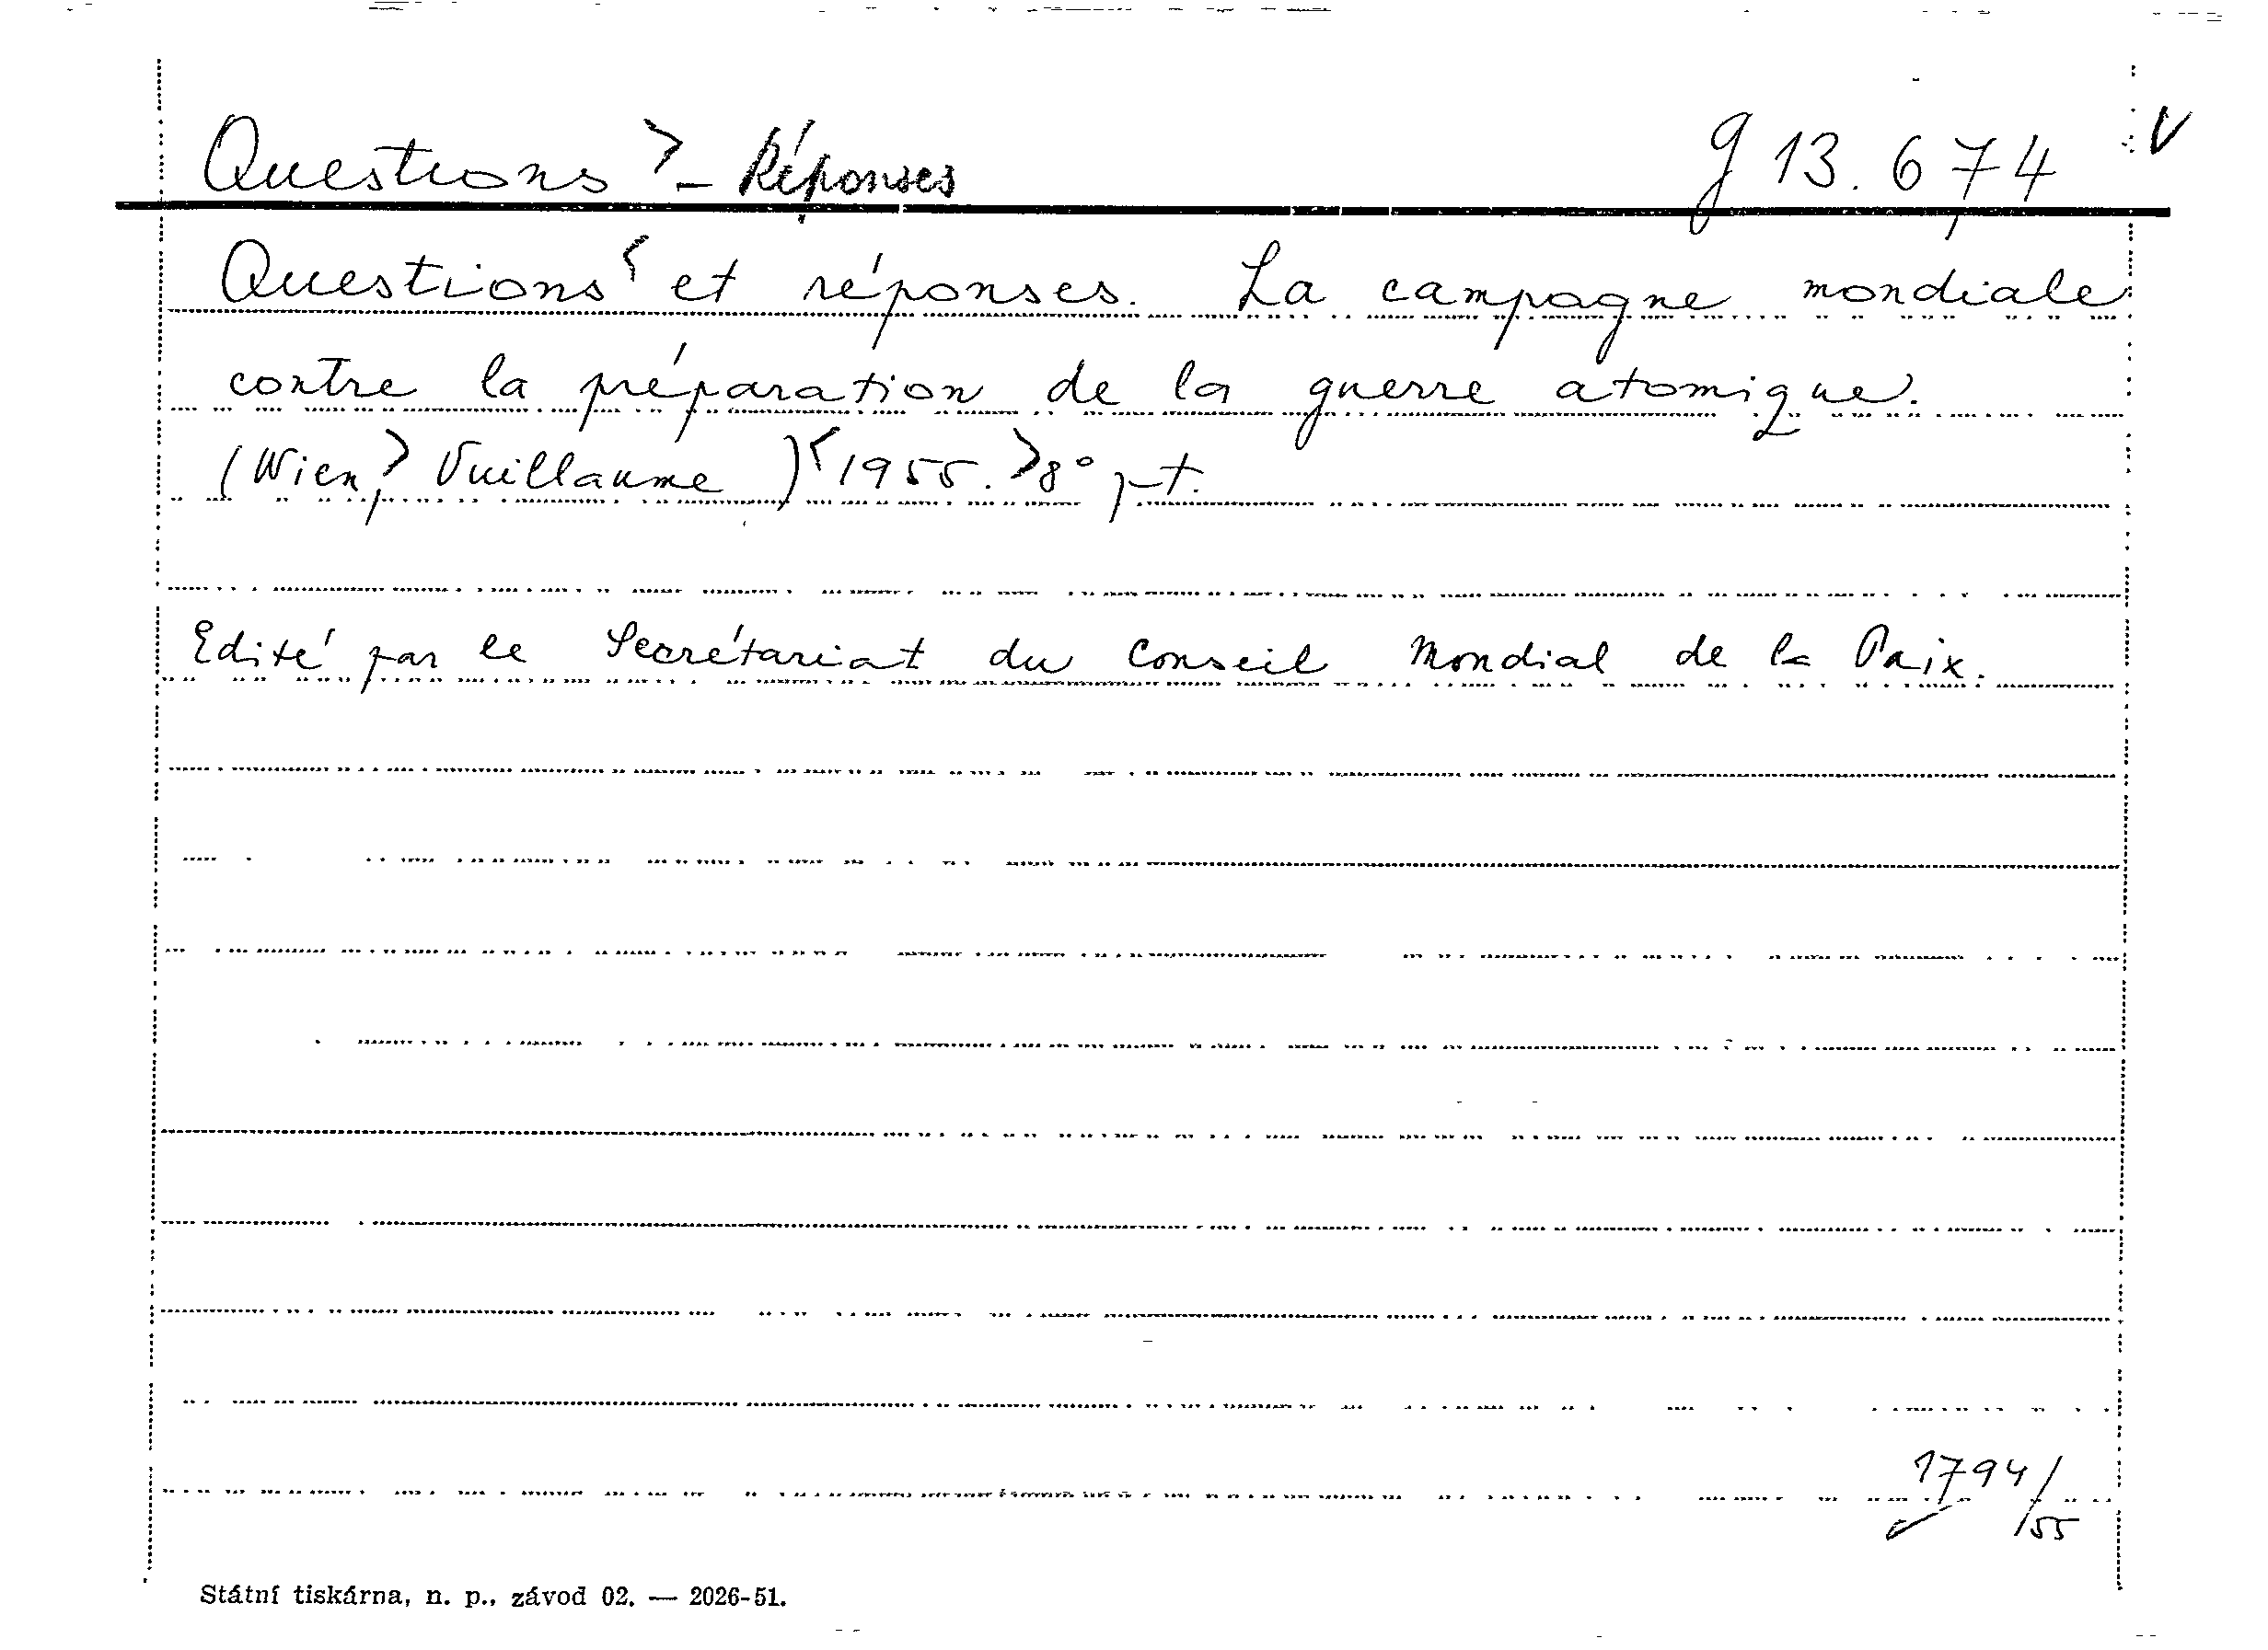 Questions > - Réponses g 13.674 V
Questions < et réponses. La campagne mondiale
contre la préparation de la guerre atomique.
(Wien,> Vuillaume )< 1955. > 8° pt.
Edité par le Secrétariat du Conseil Mondial de la Paix.
1794/
/55
Státní tiskárna, n. p., závod 02. — 2026-51.